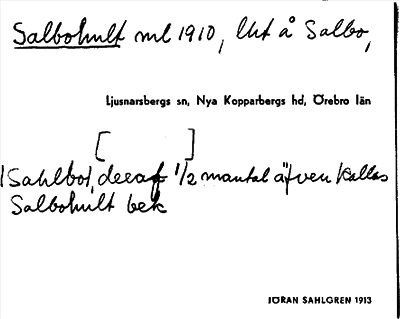 Salbohult ml 1910, lht å Salbo,
Ljusnarsbergs sn, Nya Kopparbergs hd, Örebro län
[ ]
/Sahlbo/, deraf 1/2 mantal äfven kallas
Salbohult bek
JÖRAN SAHLGREN 1913